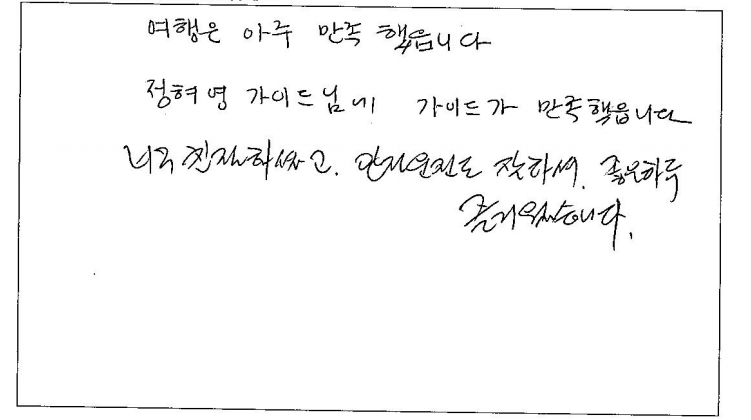 여행은 아주 만족 했읍니다
정혀영 가이드님에 가이드가 만족했읍니다
너무 친절하셨고. 안전운전도 잘하셔. 좋은하루
즐거웠습니다.